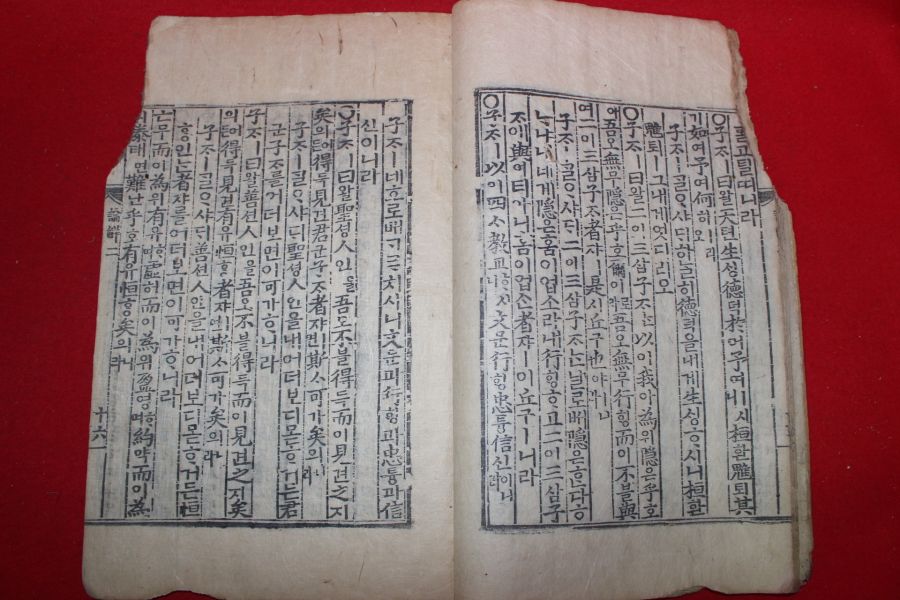 고틸띠니라
○子ᄌᆞㅣ曰왈天텬生ᄉᆡᆼ德덕於어予여ㅣ시니桓환魋퇴其
기如여予여예何하오ㅣ리오
子ᄌᆞㅣᄀᆞᆯᄋᆞ샤ᄃᆡ하ᄂᆞᆯ히德덕을내게生ᄉᆡᆼᄒᆞ시니桓환
魋퇴ㅣ그내게엇디리오
○子ᄌᆞㅣ曰왈二이三삼子ᄌᆞᄂᆞᆫ以이我아為위隠은乎호
아吾오無무隠은乎호爾이로라吾오無무行ᄒᆡᆼ而이不블與
여二이三삼子ᄌᆞ者쟈ㅣ是시丘구也야ㅣ니라
子ᄌᆞㅣᄀᆞᆯᄋᆞ샤ᄃᆡ二이三삼子ᄌᆞᄂᆞᆫ날로ᄡᅥ隠은ᄒᆞᆫ다ᄒᆞ
ᄂᆞ냐내네게隠은홈이업소라내行ᄒᆡᆼᄒᆞ고二이三삼子
ᄌᆞ애與여티아니홈이업ᄉᆞᆫ者쟈ㅣ이丘구ㅣ니라
○子ᄌᆞㅣ以이四ᄉᆞ教교ᄒᆞ시니文문行ᄒᆡᆼ忠튱信신이니라
子ᄌᆞㅣ네흐로ᄡᅥᄀᆞᄅᆞ치시니文문과行ᄒᆡᆼ과忠튱과信
신이니라
○子ᄌᆞㅣ曰왈聖셩人인을吾오不블得득而이見견之지
矣의어든得득見견君군子ᄌᆞ者쟈면斯ᄉᆞ可가矣의니라
子ᄌᆞㅣᄀᆞᆯᄋᆞ샤ᄃᆡ聖셩人인을내어더보디몯ᄒᆞ거든君
군子ᄌᆞᄅᆞᆯ어더보면이可가ᄒᆞ니라
子ᄌᆞㅣ曰왈善션人인을吾오不블得득而이見견之지矣
의어든得득見견有유恒ᄒᆞᆼ者쟈ㅣ면斯ᄉᆞ可가矣의니라
子ᄌᆞㅣᄀᆞᆯᄋᆞ샤ᄃᆡ善션人인을내어더보디몯ᄒᆞ거든恒
ᄒᆞᆼ인ᄂᆞᆫ者쟈ᄅᆞᆯ어더보면이可가ᄒᆞ니라
亡무而이為위有유ᄒᆞ며虛허而이為위盈영ᄒᆞ며約약而이為
泰태면難난乎호有유恒ᄒᆞᆼ矣의니라
論語二
十六